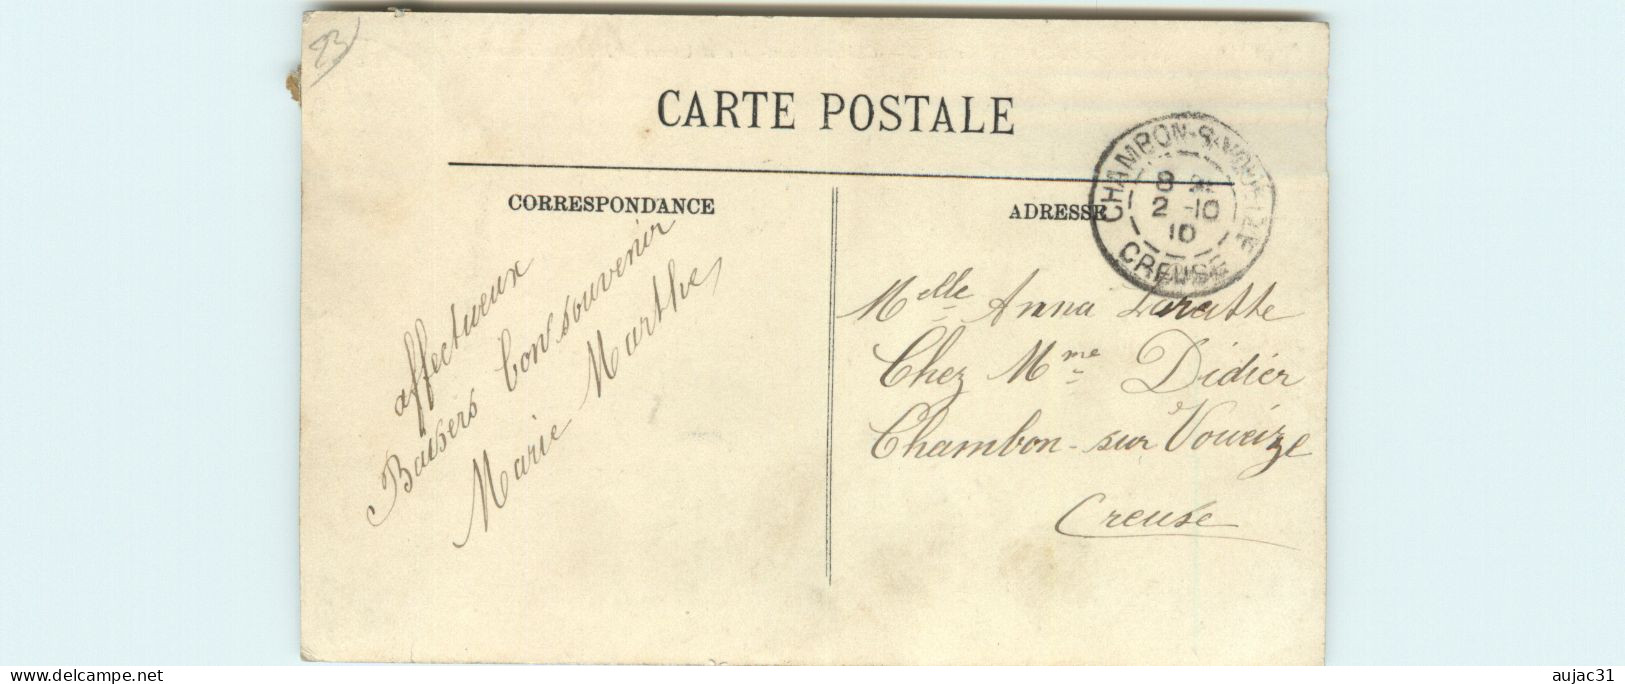 23
CARTE POSTALE
CORRESPONDANCE
ADRESSE
CHAMBON-S-VOUEIZE
8
2 -10
10
CREUSE
affectueux
Baisers bons souvenir
Marie Marthe
Melle Anna
Chez Mme Didier
Chambon-sur Voueize
Creuse
aujac31